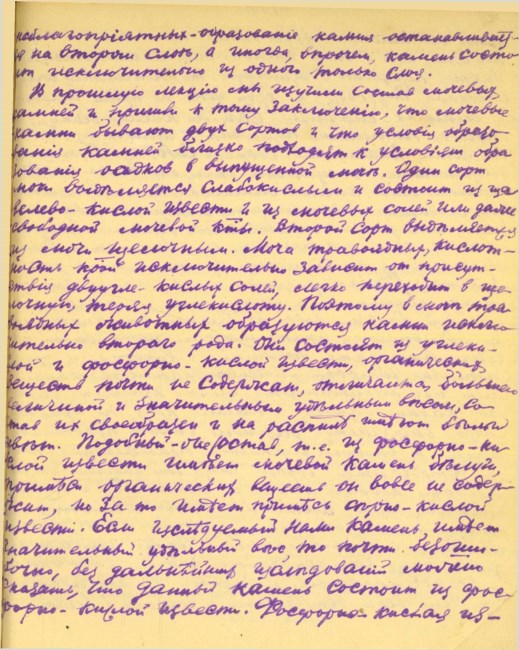 неблагопріятных-образованіе камня останавливает-
ся на втором слоѣ, а иногда, впрочем, камень состо-
ит исключительно из одного только слоя.
В прошлую лекцію мы изучили состав мочевых
камней и пришли к тому заключенію, что мочевые
камни бывают двух сортов и что условія образо-
ванія камней близко подходят к условіям обра
зованія осадков в выпущенной мочѣ. Один сорт
мочи выдѣляется слабокислым и состоит из ща
велево-кислой извести и из мочевых солей или даже
свободной мочевой к-ты. Второй сорт выдѣляется
из мочи щелочным. Моча травоядных, кислот-
ность крой исключительно зависит от присут-
ствія двуугле-кислых солей, легко переходит в ще
лочную, теряя углекислоту. Поэтому в мочѣ тра
воядных животных образуются камни исключи
тельно второго рода. Они состоят из углеки-
лой и фосфорно-кислой извести, органических
веществ почти не содержат, отличаются большею
величиной и значительным удѣльным вѣсом, со
став их своеобразен и на распилѣ имѣют бѣлый
цвѣт. Подобный-же состав, т.е. из фосфорно-ки-
слой извести имѣет мочевой камень бѣлый,
примѣси органических веществ он вовсе не содер-
жит, но за то имѣет примѣсь сѣрно-кислой
извести. Если изслѣдуемый нами камень имѣет
значительный удѣльный вѣс, то почти безоши-
бочно, без дальнѣйших изслѣдованій можно
сказать, что данный камень состоит из фос-
форно-кислой извести. Фосфорно-кислая из-